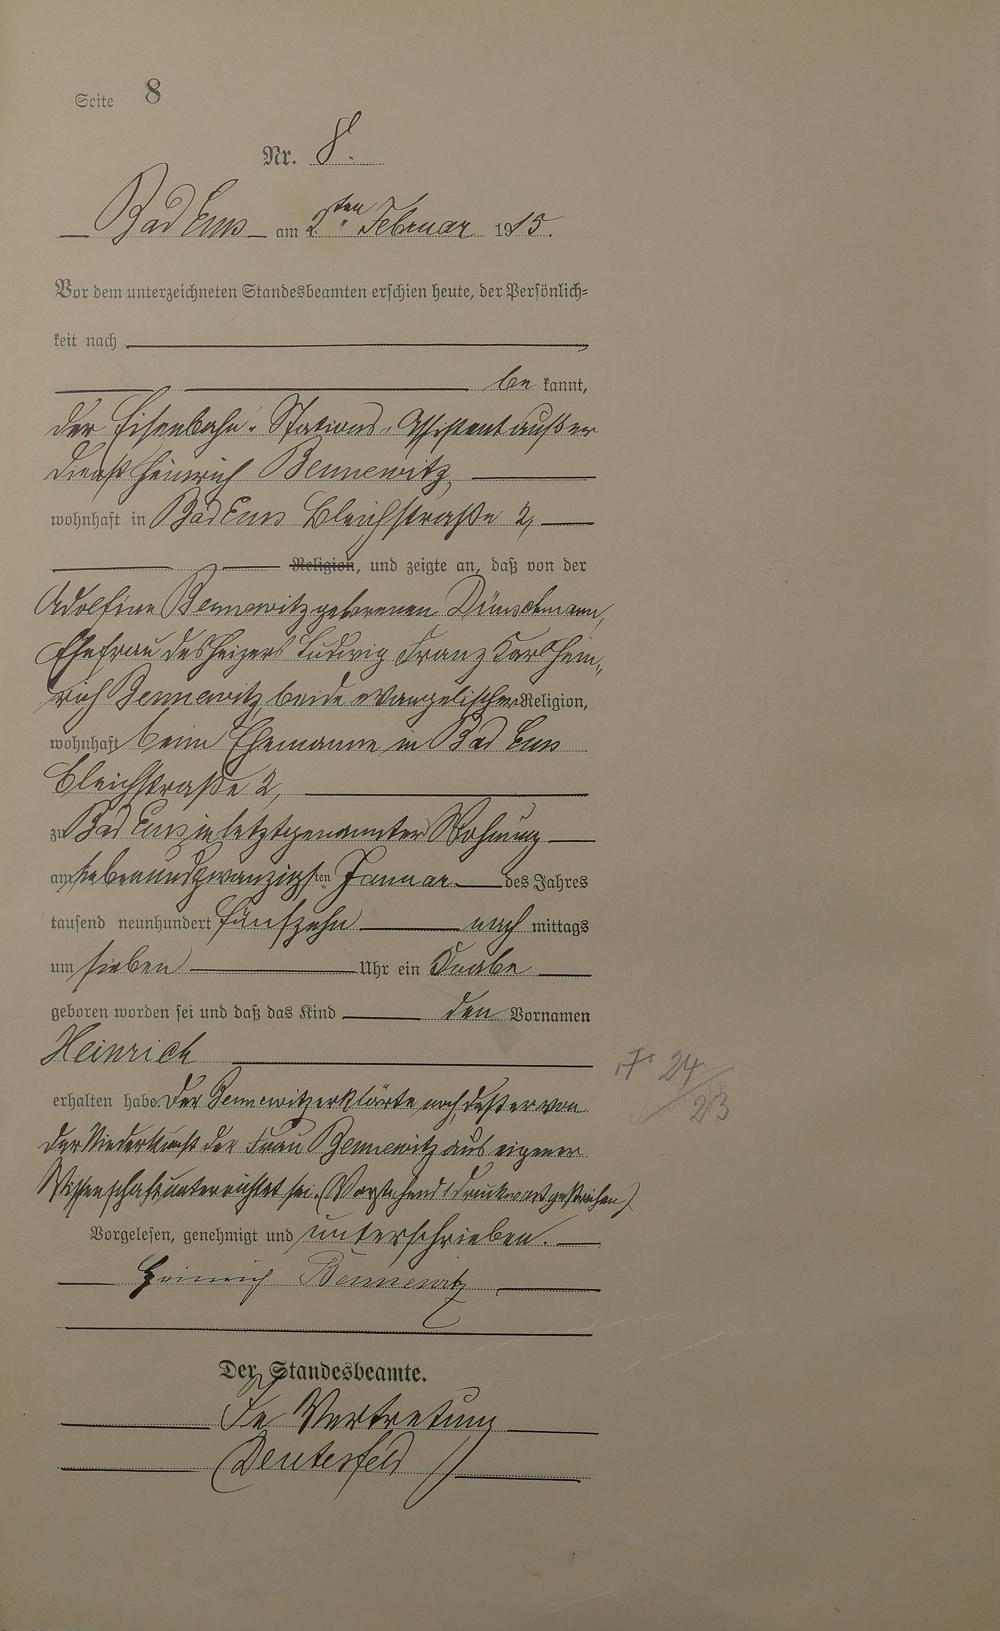 Seite 8
Nr. 8.
Bad Ems am 2ten Februar 1915.
Vor dem unterzeichneten Standesbeamten erschien heute, der Persönlich=
keit nach
be kannt,
der Eisenbahn-Stations-Assistent außer
Dienst Heinrich Bennewitz,
wohnhaft in Bad Ems Bleichstraße 2,
Religion, und zeigte an, daß von der
Adolfine Bennewitz geborenen Dünschmann,
Ehefrau des Heizers Ludwig Franz Karl Hein„
rich Bennewitz, beide evangelischer Religion,
wohnhaft beim Ehemanne in Bad Ems
Bleichstraße 2,
zu Bad Ems in letztgenannter Wohnung
am siebenundzwanzigsten Januar des Jahres
tausend neunhundert fünfzehn nach mittags
um sieben Uhr ein Knabe
geboren worden sei und daß das Kind den Vornamen
Heinrich
erhalten habe. Der Bennewitz erklärte noch, daß er von
der Niederkunft der Frau Bennewitz aus eigener
Wissenschaft unterrichtet sei. (Vorstehend 1 Druckwort gestrichen)
Vorgelesen, genehmigt und unterschrieben.
Heinrich Bennewitz
Der Standesbeamte.
In Vertretung